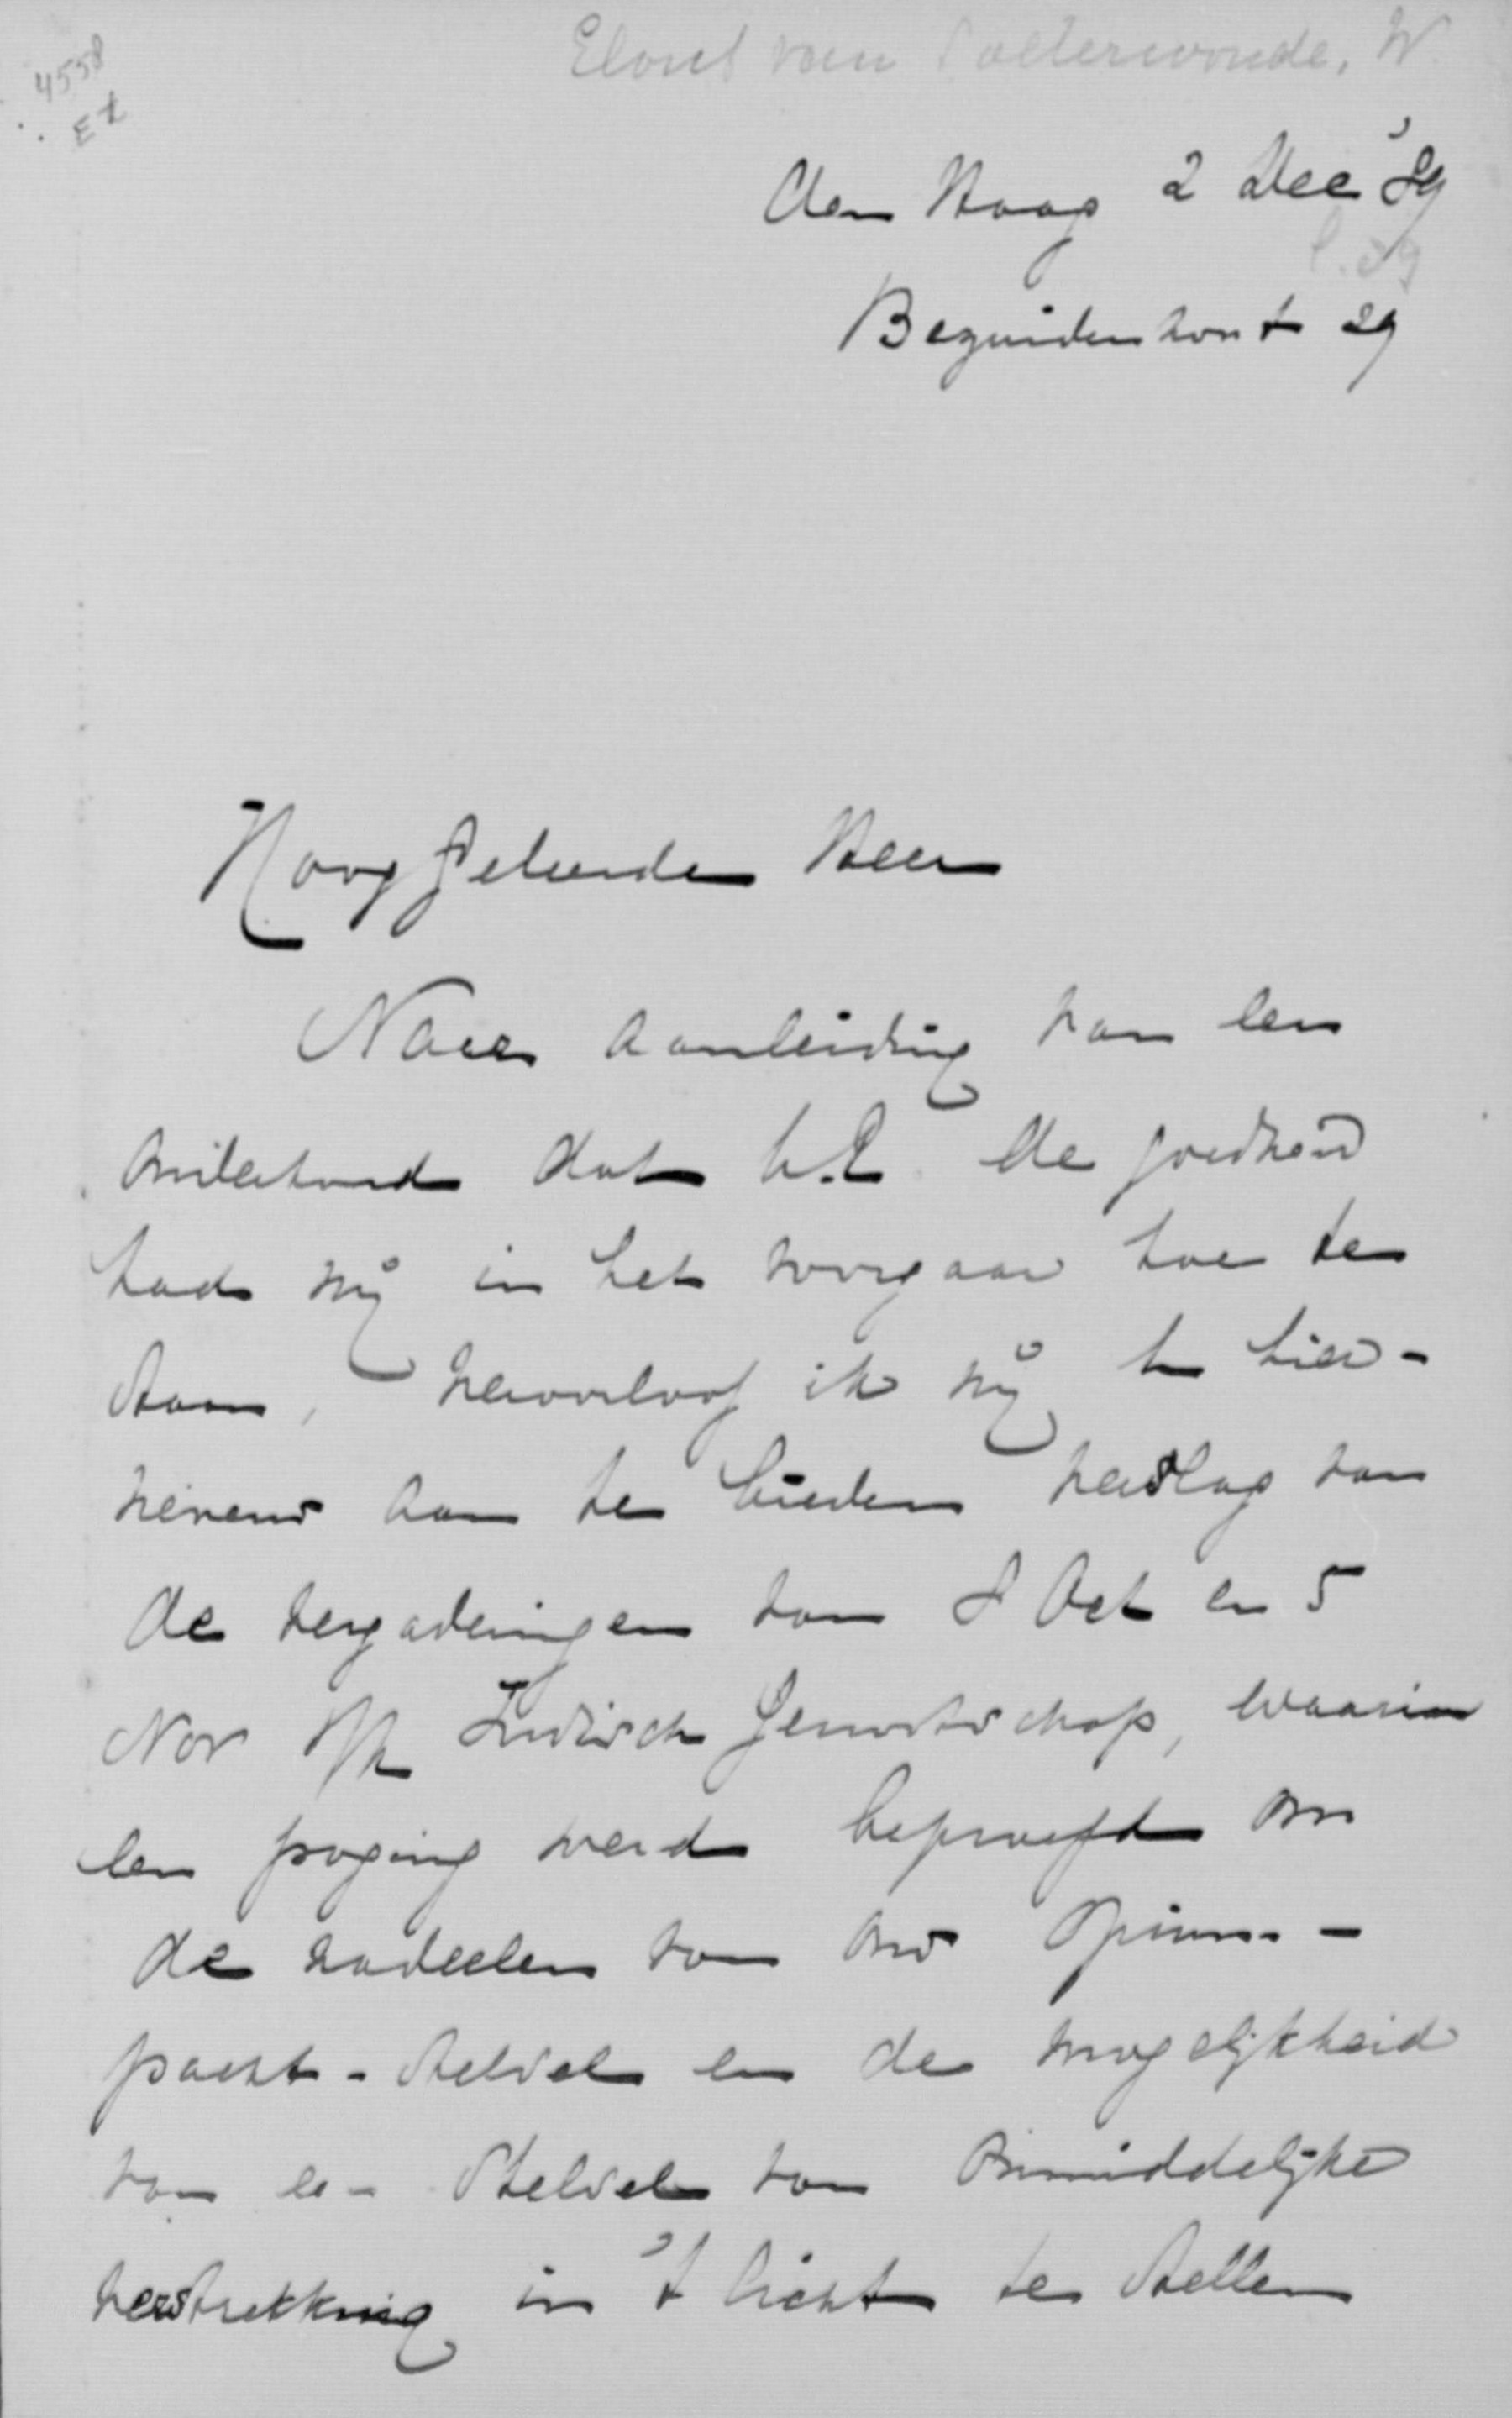 4558
Et
Elout van Soeterwoude, W.
den Haag 2 Dec '89
Bezuidenhout 29
Hooggeleerde Heer
Naar aanleiding van een
onderhoud dat U.E. de goedheid
had mij in het voorjaar toe te
staan, veroorloof ik mij U hier-
nevens aan te bieden verslag van
de vergaderingen van 8 Oct en 5
Nov Indisch Genootschap, waarin
een poging werd beproefd om
de nadeelen van ons Opium-
pacht-stelsel en de mogelijkheid
van een Stelsel van onmiddelijke
verstrekking in 't licht te stellen